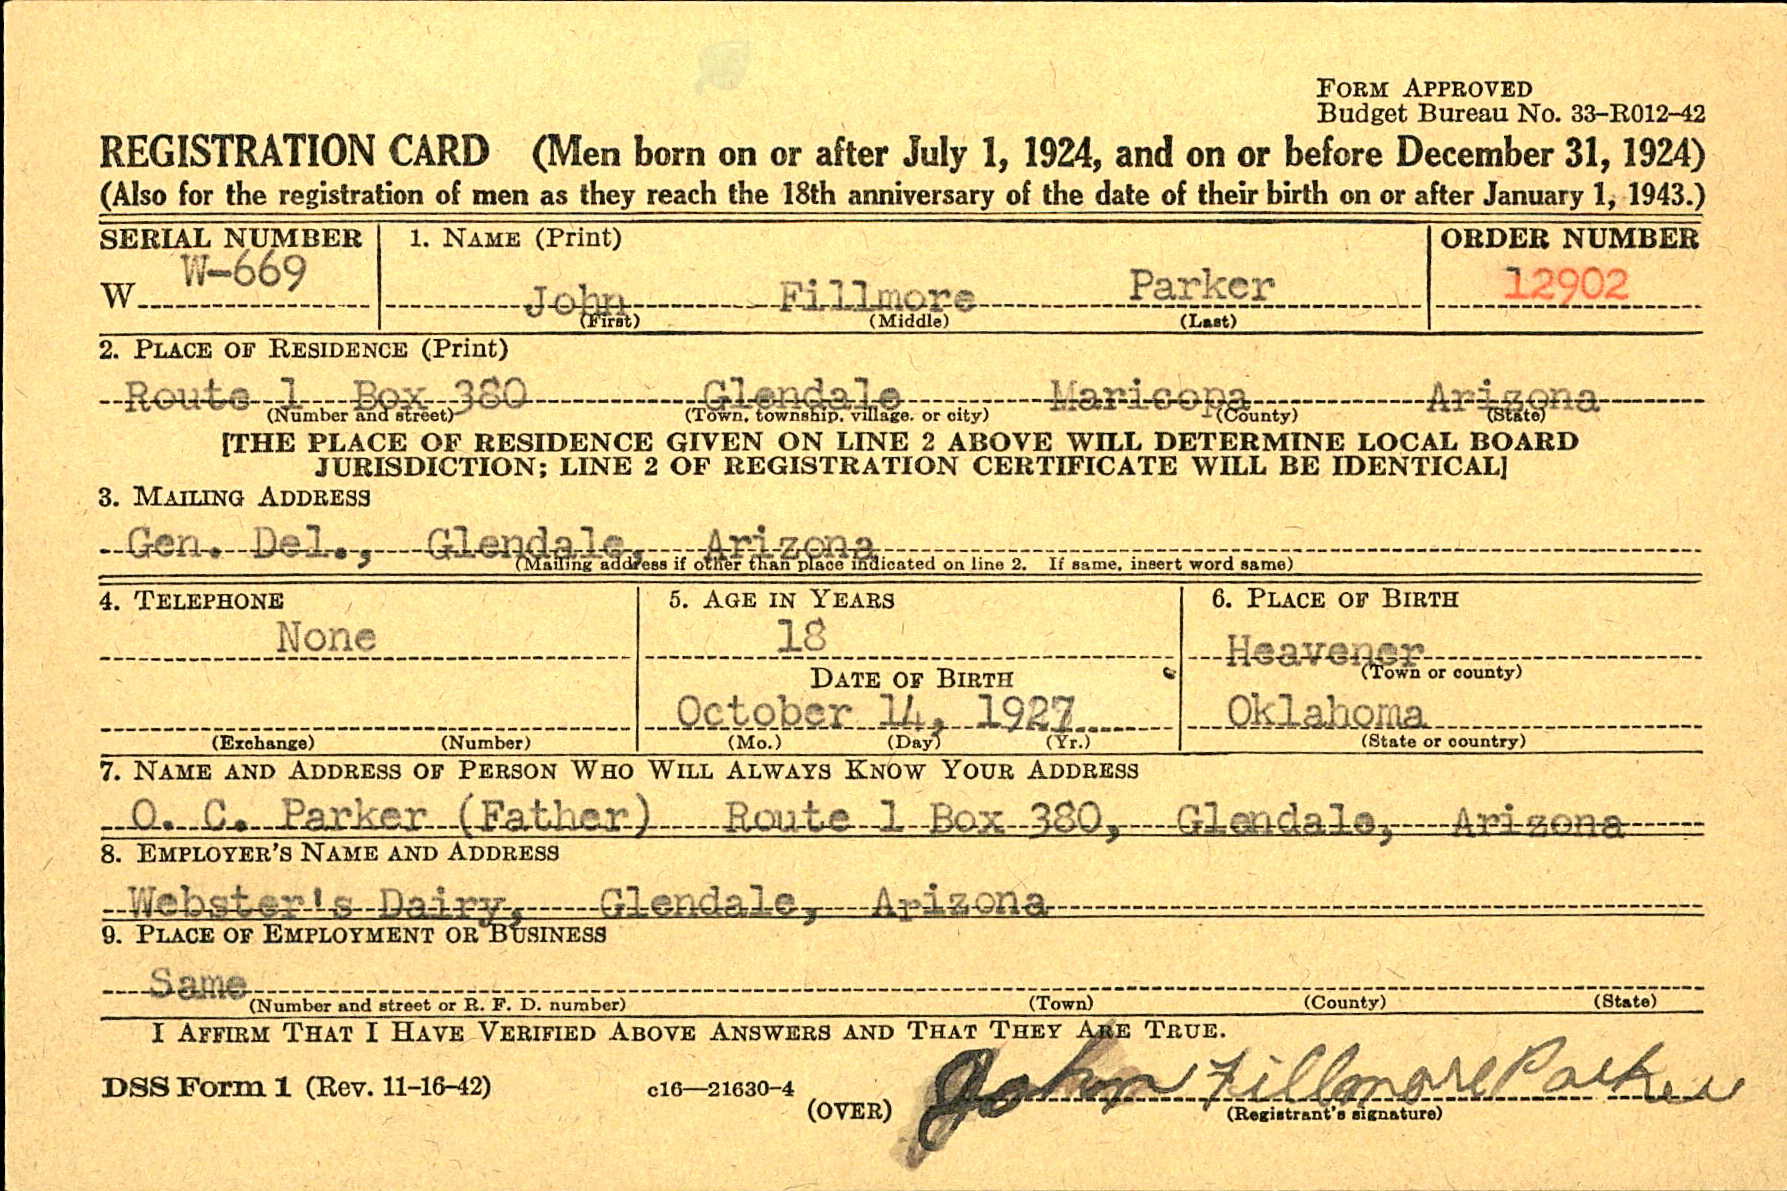 FORM APPROVED
Budget Bureau No. 33-R012-42
REGISTRATION CARD (Men born on or after July 1, 1924, and on or before December 31, 1924)
(Also for the registration of men as they reach the 18th anniversary of the date of their birth on or after January 1, 1943.)
SERIAL NUMBER 1. NAME (Print) ORDER NUMBER
W W-669 John Fillmore Parker 12902
(First) (Middle) (Last)
2. PLACE OF RESIDENCE (Print)
Route 1 Box 380 Glendale Maricopa Arizona
(Number and street) (Town, township, village, or city) (County) (State)
[THE PLACE OF RESIDENCE GIVEN ON LINE 2 ABOVE WILL DETERMINE LOCAL BOARD
JURISDICTION; LINE 2 OF REGISTRATION CERTIFICATE WILL BE IDENTICAL]
3. MAILING ADDRESS
Gen. Del., Glendale, Arizona
(Mailing address if other than place indicated on line 2. If same, insert word same)
4. TELEPHONE 5. AGE IN YEARS 6. PLACE OF BIRTH
None 18 Heavener
(Town or county)
DATE OF BIRTH
October 14, 1927 Oklahoma
(Exchange) (Number) (Mo.) (Day) (Yr.) (State or country)
7. NAME AND ADDRESS OF PERSON WHO WILL ALWAYS KNOW YOUR ADDRESS
O. C. Parker (Father) Route 1 Box 380, Glendale, Arizona
8. EMPLOYER'S NAME AND ADDRESS
Webster's Dairy, Glendale, Arizona
9. PLACE OF EMPLOYMENT OR BUSINESS
Same
(Number and street or R. F. D. number) (Town) (County) (State)
I AFFIRM THAT I HAVE VERIFIED ABOVE ANSWERS AND THAT THEY ARE TRUE.
DSS Form 1 (Rev. 11-16-42) c16—21630-4 (OVER) John Fillmore Parker
(Registrant's signature)